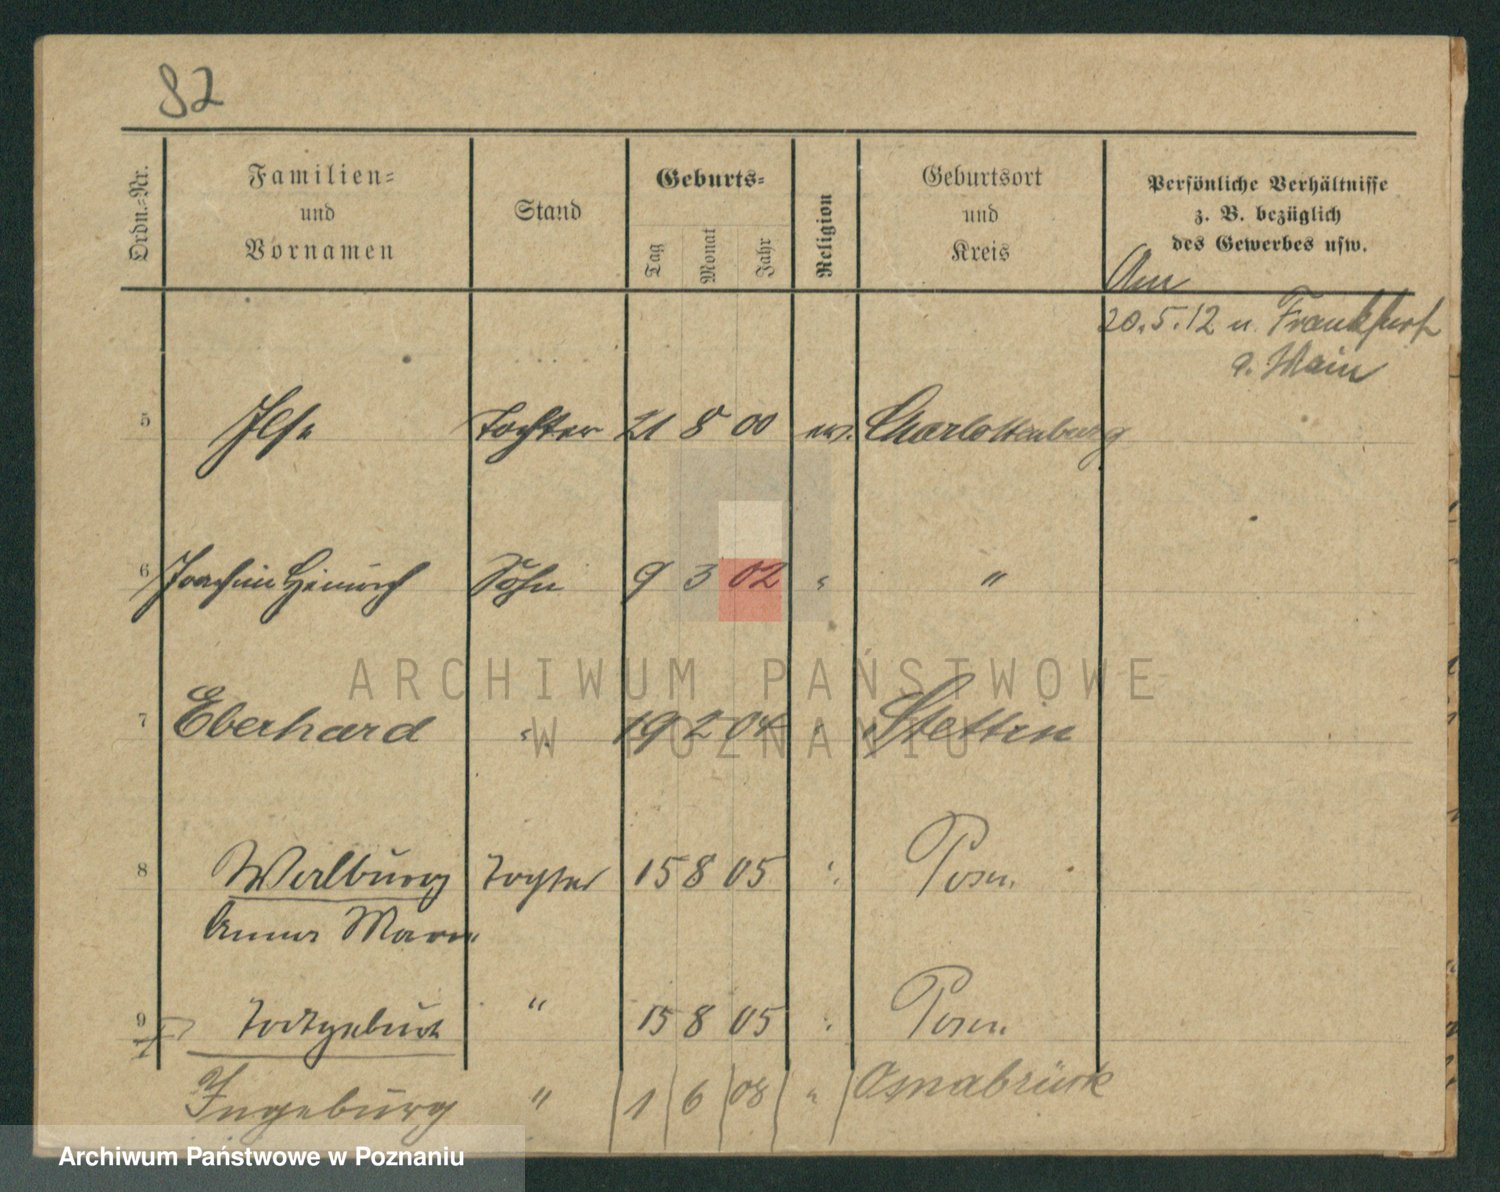 82
Ordn.-Nr. Familien- und Vornamen Stand Geburts- Tag Monat Jahr Religion Geburtsort und Kreis Persönliche Verhältnisse z. B. bezüglich des Gewerbes usw.
Am
20.5.12 n. Frankfurt
a. Main
5 Ilse Tochter 21 8 00 ev. Charlottenburg
6 Joachim Heinrich Sohn 9 3 02 " "
ARCHIWUM PAŃSTWOWE
7 Eberhard " 19 2 04 " Stettin
W POZNANIU
8 Walburg Tochter 15 8 05 " Posen
Anna Marie
9 Todtgeburt " 15 8 05 " Posen
Ingeburg " 1 6 08 " Osnabrück
Archiwum Państwowe w Poznaniu